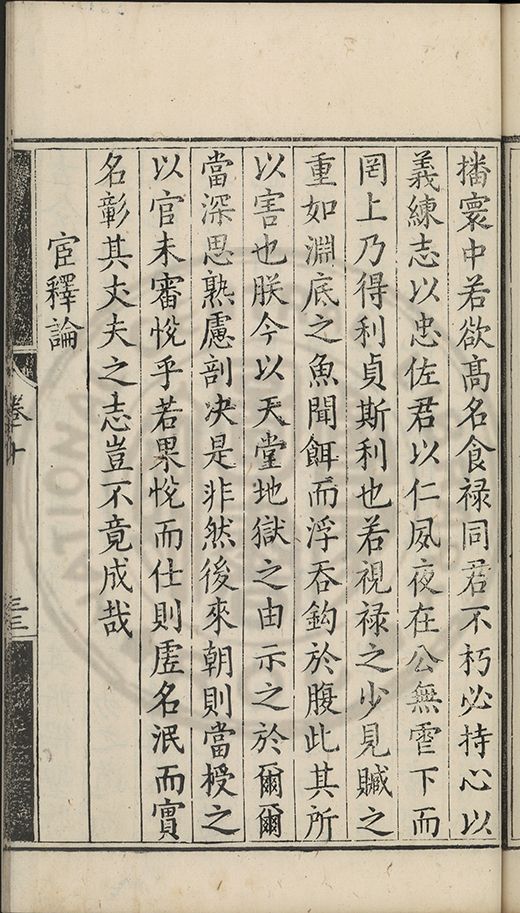 播寰中若欲髙名食禄同君不朽必持心以
義練志以忠佐君以仁夙夜在公無虐下而
罔上乃得利貞斯利也若視禄之少見贓之
重如淵底之魚聞餌而浮吞鈎於腹此其所
以害也朕今以天堂地獄之由示之於爾爾
當深思熟慮剖决是非然後來朝則當授之
以官未審悅乎若果悅而仕則虛名泯而實
名彰其丈夫之志豈不竟成哉
宦釋論
卷十
三